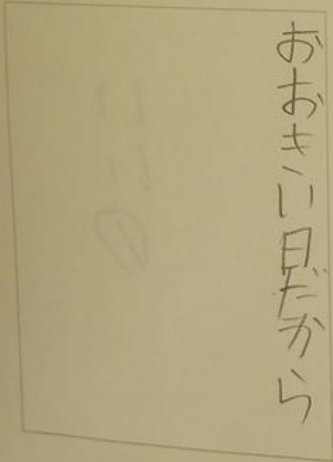 おおきい日だから